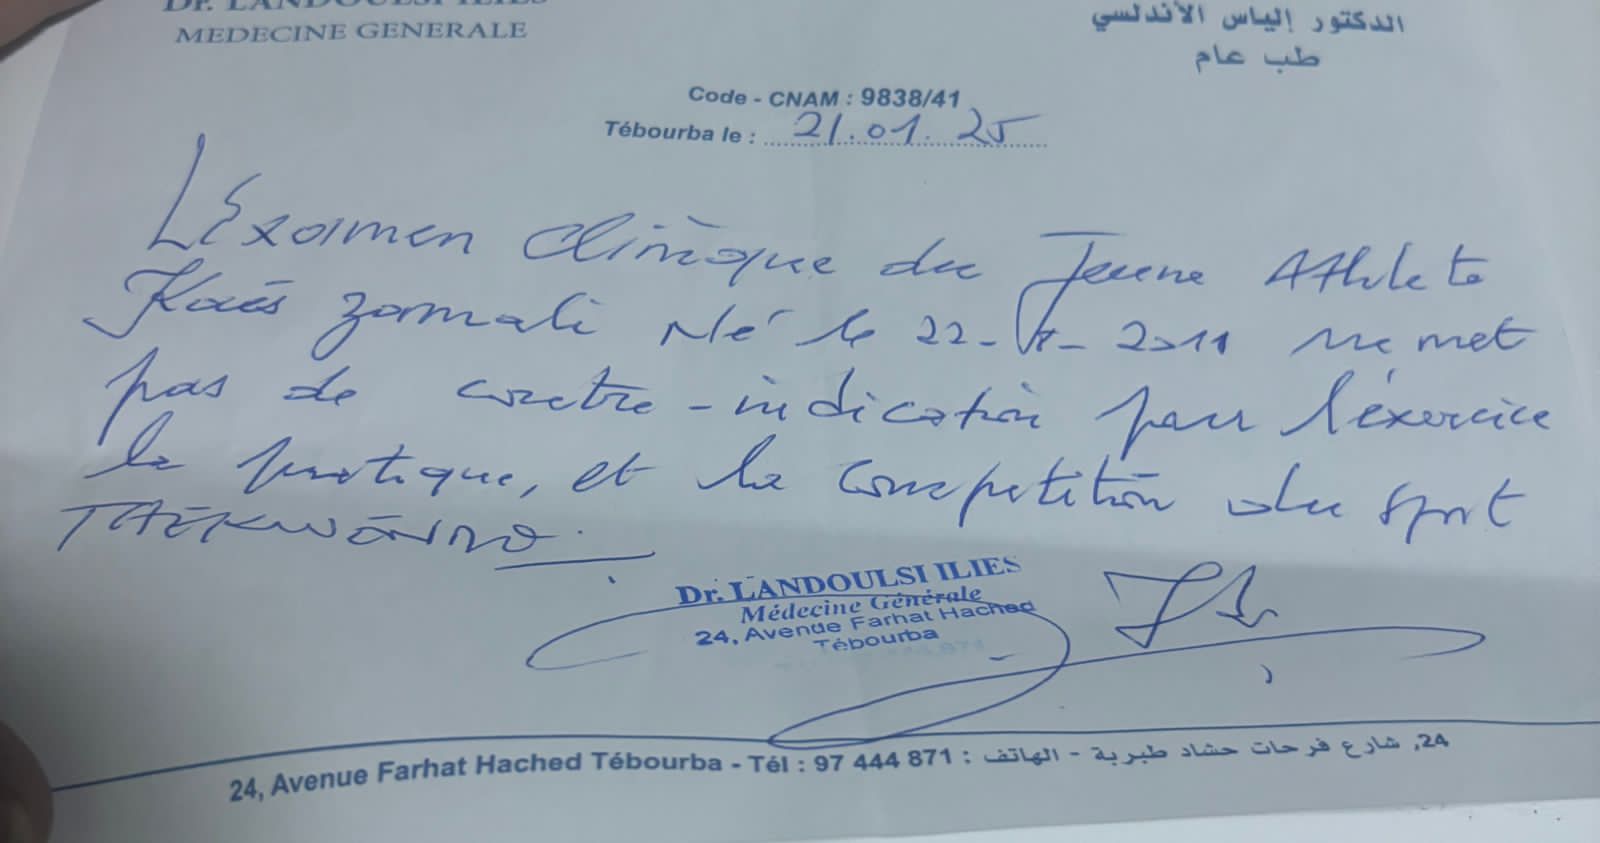 Dr. LANDOULSI ILIES
MEDECINE GENERALE
الدكتور إلياس الأندلسي
طب عام
Code - CNAM : 9838/41
Tébourba le : 21.01.25
L'Examen clinique du Jeune Athlete
Kaés zammali Né le 22- -2011 ne met
pas de contre-indication pour l'éxercice
la pratique, et la competition du sport
TAEKWONDO.
Dr. LANDOULSI ILIES
Médecine Générale
24, Avenue Farhat Hached
Tébourba
24, Avenue Farhat Hached Tébourba - Tél : 97 444 871 : 24, شارع فرحات حشاد طبربة - الهاتف